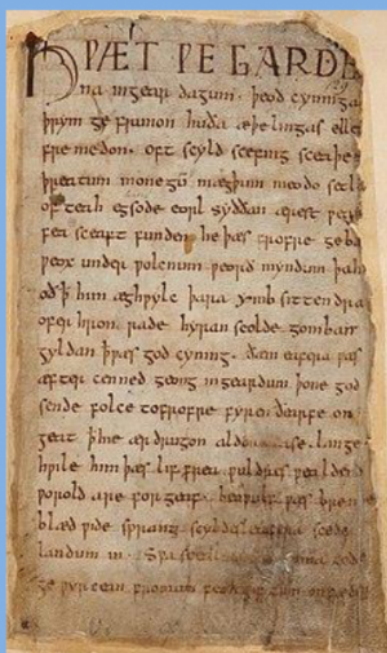 HǷÆT ǷE GARDE
na ingear dagum. þeod cyninga
þrym ge frunon huða æþelingas elle
fre medon. oft scyld scefing sceaþe
þreatum monegū mægþum meodo setl
of teah egsode eorl syððan ærest ƿea
fea sceaft funden he þæs frofre geba
ƿeox under ƿolcnum ƿeorð myndum þah
oð ꝥ him æghƿylc þara ymb sittendra
ofer hron rade hyran scolde gomban
gyldan ꝥ ƿæs god cyning. ðæm eafera ƿæs
æfter cenned geong in geardum þone god
sende folce tofrofre fyren ðearfe on
geat ꝥ hie ær drugon aldor ase. lange
hƿile him þæs lif frea ƿuldres ƿealdend
ƿorold are for geaf. beoƿulf ƿæs breme
blæd ƿide sprang scyldes eafera scede
landum in. Sƿa sceal guma gode
ge ƿyrcean fromum